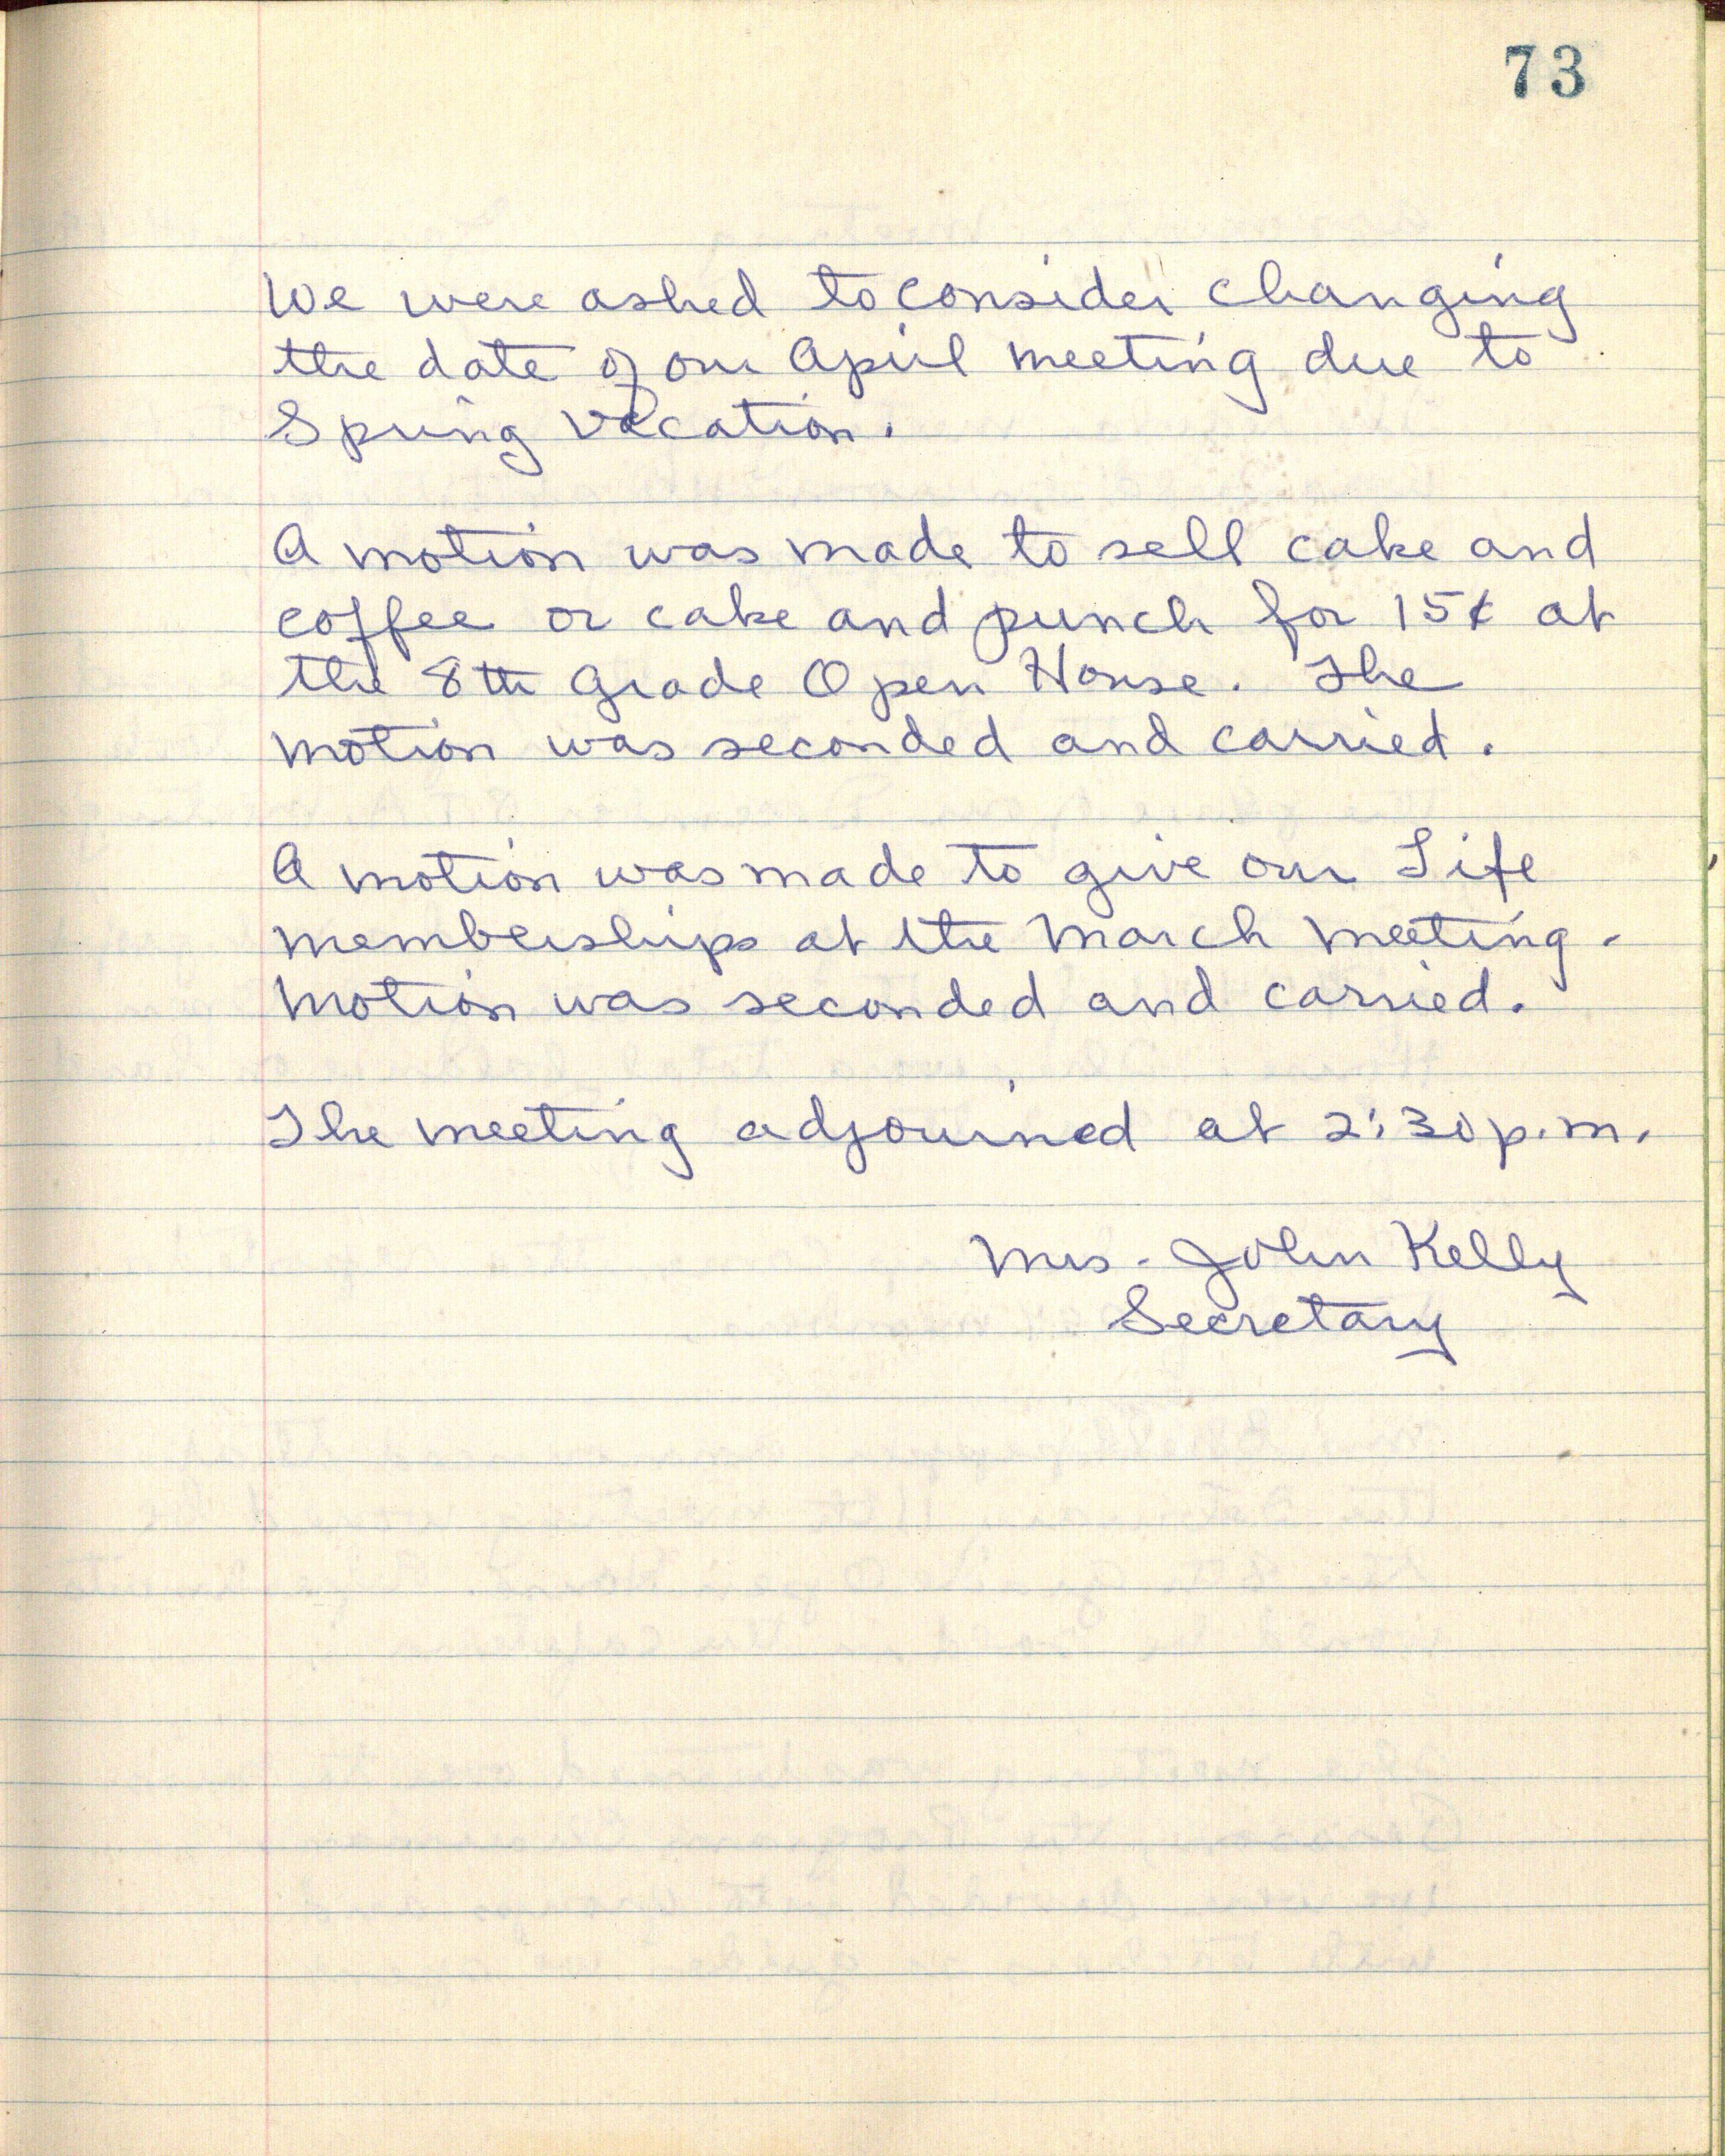 73
We were asked to consider changing
the date of our April meeting due to
Spring Vacation.
A motion was made to sell cake and
coffee or cake and punch for 15¢ at
the 8th Grade Open House. The
motion was seconded and carried.
A motion was made to give our Life
memberships at the March meeting.
Motion was seconded and carried.
The meeting adjourned at 2:30 p.m.
Mrs. John Kelly
Secretary